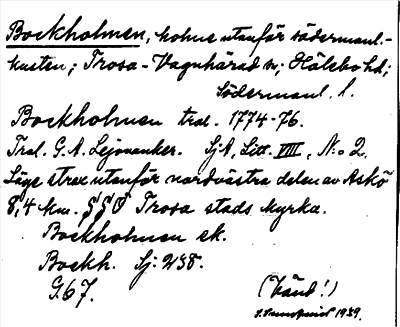 Bockholmen, holme utanför södermanl.-
kusten; Trosa-Vagnhärad sn; Hölebo hd;
Södermanl. l.
Bockholmen tral. 1774-76.
Tral. G. A. Lejonanker. SjA, Litt. VIII, N:o 2.
Läge strax utanför nordvästra delen av Askö
8,4 km. SSO Trosa stads kyrka.
Bockholmen ek.
Bockh. Sj: 238.
G. 67.
(Vänd!)
Sundquist 1939.